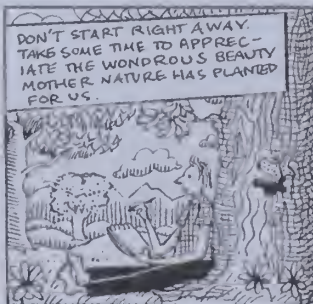 DON'T START RIGHT AWAY.
TAKE SOME TIME TO APPREC-
IATE THE WONDROUS BEAUTY
MOTHER NATURE HAS PLANTED
FOR US.